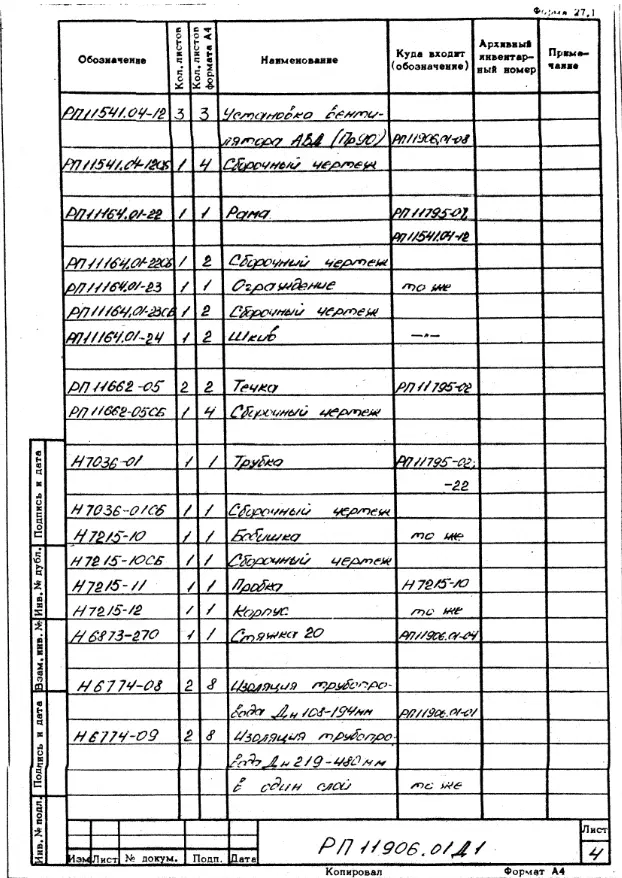 Форма 27.1
Обозначение Кол. листов Кол. листов формата А4 Наименование Куда входит (обозначение) Архивный инвентарный номер Примечание
РП11541.04-12 3 3 Установка венти-
лятора АБД (Пр90) РП11906.01-08
РП11541.04-12СБ 1 4 Сборочный чертеж
РП11164.01-22 1 1 Рама РП11795-02,
РП11541.04-12
РП11164.01-22СБ 1 2 Сборочный чертеж
РП11164.01-23 1 1 Ограждение то же
РП11164.01-23СБ 1 2 Сборочный чертеж
РП11164.01-24 1 2 Шкив —"—
РП11662-05 2 2 Течка РП11795-02
РП11662-05СБ 1 4 Сборочный чертеж
Н7036-01 1 1 Трубка РП11795-02;
-22
Н7036-01СБ 1 1 Сборочный чертеж
Н7215-10 1 1 Бобышка то же
Н7215-10СБ 1 1 Сборочный чертеж
Н7215-11 1 1 Пробка Н7215-10
Н7215-12 1 1 Корпус то же
Н6873-270 1 1 Стяжка 20 РП11906.01-04
Н6774-08 2 8 Изоляция трубопро-
вода Дн 108-194мм РП11906.01-01
Н6774-09 2 8 Изоляция трубопро-
вода Дн 219-480мм
в один слой то же
Инв. № подл. Подпись и дата Взам. инв. № Инв. № дубл. Подпись и дата
Изм Лист № докум. Подп. Дата
РП 11906.01Д1
Лист
4
Копировал Формат А4